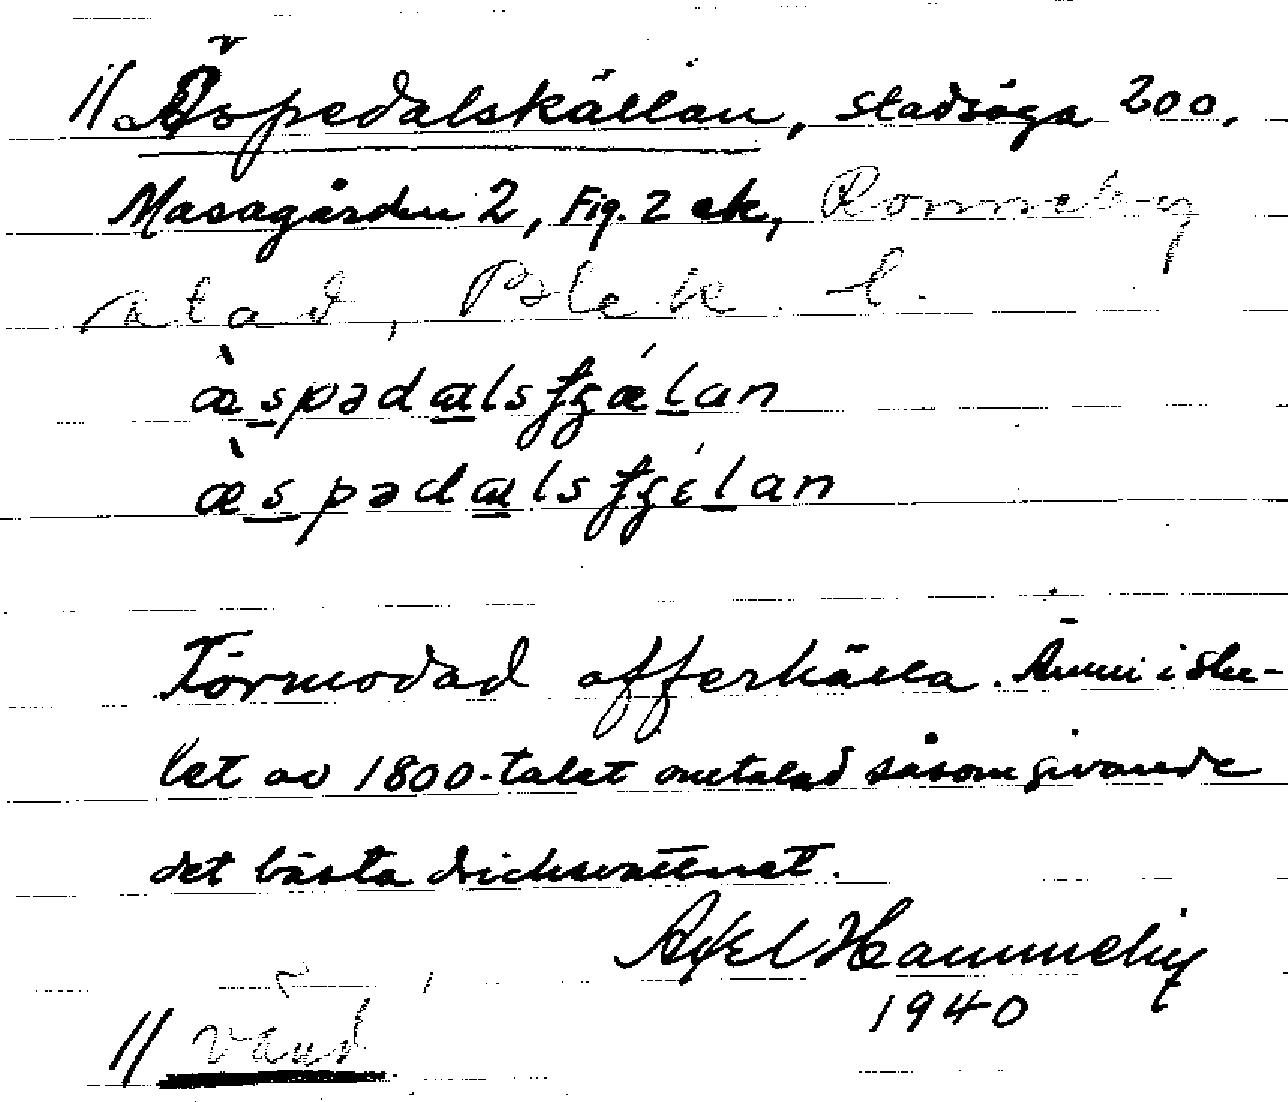 1/ Äspedalskällan, stadsäga 200,
Masagården 2, Fig. 2 ek, Ronneby
stad, Blek. l.
æ̀spədalsʃʒǽlan
æ̀spədalsʃʒɛ́lan
Förmodad offerkälla. Ännu i slu-
tet av 1800-talet omtalad såsom givande
det bästa dricksvattnet.
Axel Hammeby
1940
1/ vänd